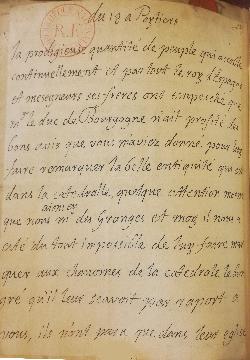 du 18 a Poitiers
la prodigieuse quantité de peuple qui accable
continuellement et par tout le roy d'espagne
et messeigneurs ses freres ont empesché que
mgr le duc de Bourgogne n'ait profité des
bons avis que vous m'aviez donne pour luy
faire remarquer la belle antiquité qui est
dans la catedralle, quelque attention mesme
que nous mr du Granges et moy il nous a
esté du tout impossible de luy faire mar
quer aux chanoines de la catedrale le bon
gré qu'il leur scavoit par raport a
vous, ils n'ont paru que dans leur eglise